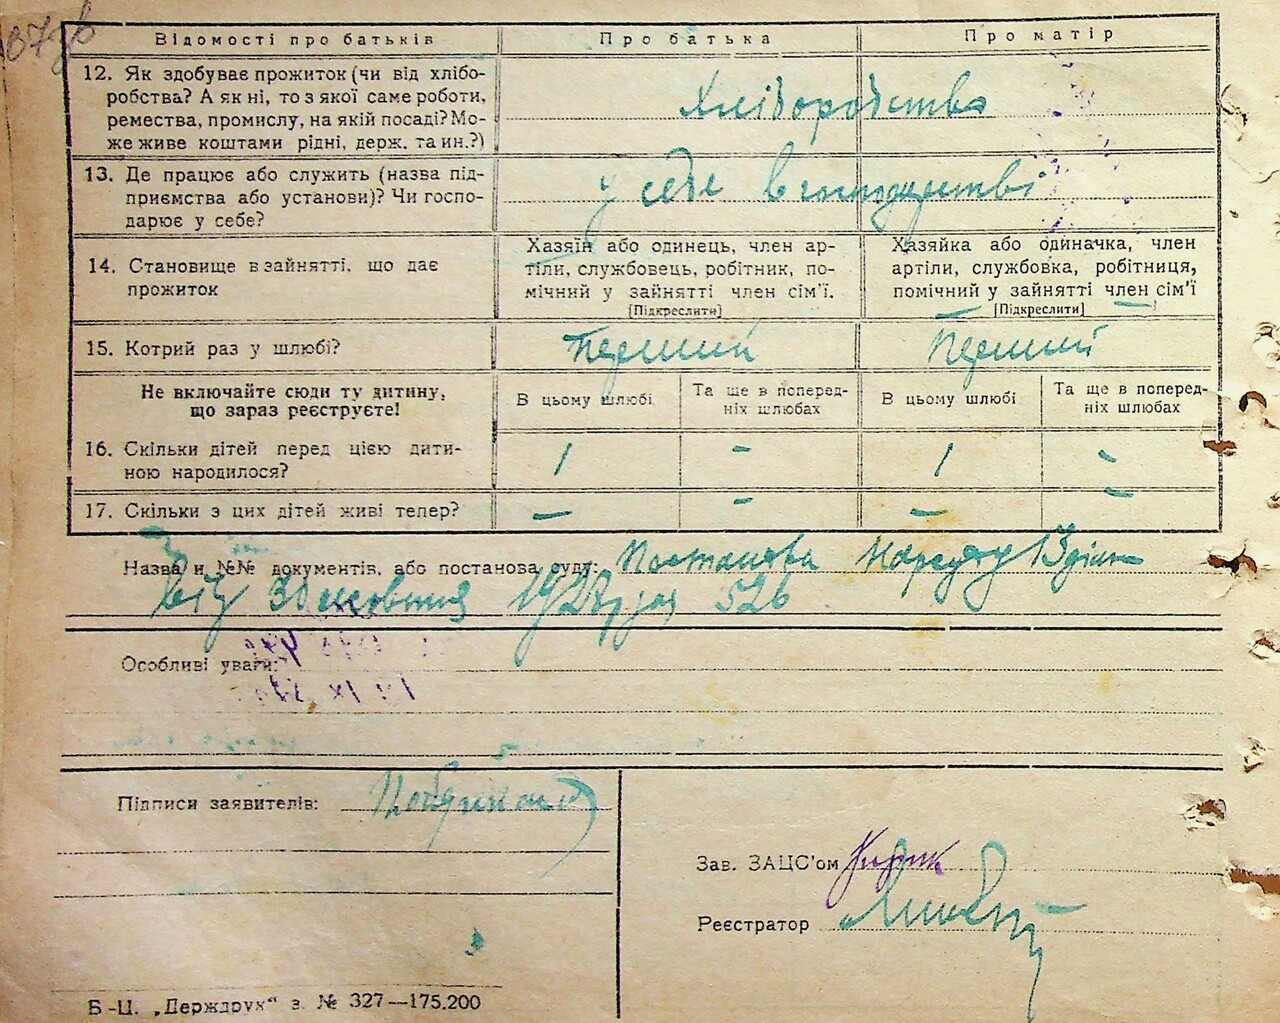 87зв
Відомості про батьків
Про батька
Про матір
12. Як здобуває прожиток (чи від хлібо-
робства? А як ні, то з якої саме роботи,
ремества, промислу, на якій посаді? Мо-
же живе коштами рідні, держ. та ин.?)
Хліборобство
13. Де працює або служить (назва під-
приємства або установи)? Чи госпо-
дарює у себе?
у себе в господарстві
14. Становище в зайнятті, що дає
прожиток
Хазяїн або одинець, член ар-
тіли, службовець, робітник, по-
мічний у зайнятті член сім'ї.
[Підкреслити]
Хазяйка або одиначка, член
артіли, службовка, робітниця,
помічний у зайнятті член сім'ї
[Підкреслити]
15. Котрий раз у шлюбі?
Перший
Перший
Не включайте сюди ту дитину,
що зараз реєструєте!
В цьому шлюбі
Та ще в поперед-
ніх шлюбах
В цьому шлюбі
Та ще в поперед-
ніх шлюбах
16. Скільки дітей перед цією дити-
ною народилося?
1 - 1 -
17. Скільки з цих дітей живі тепер?
- - - -
Назва и №№ документів, або постанова суду: Постанова
526
Особливі уваги:
Підписи заявителів:
Зав. ЗАЦС'ом
Реєстратор
Б-Ц. „Держдрук" з. № 327—175.200